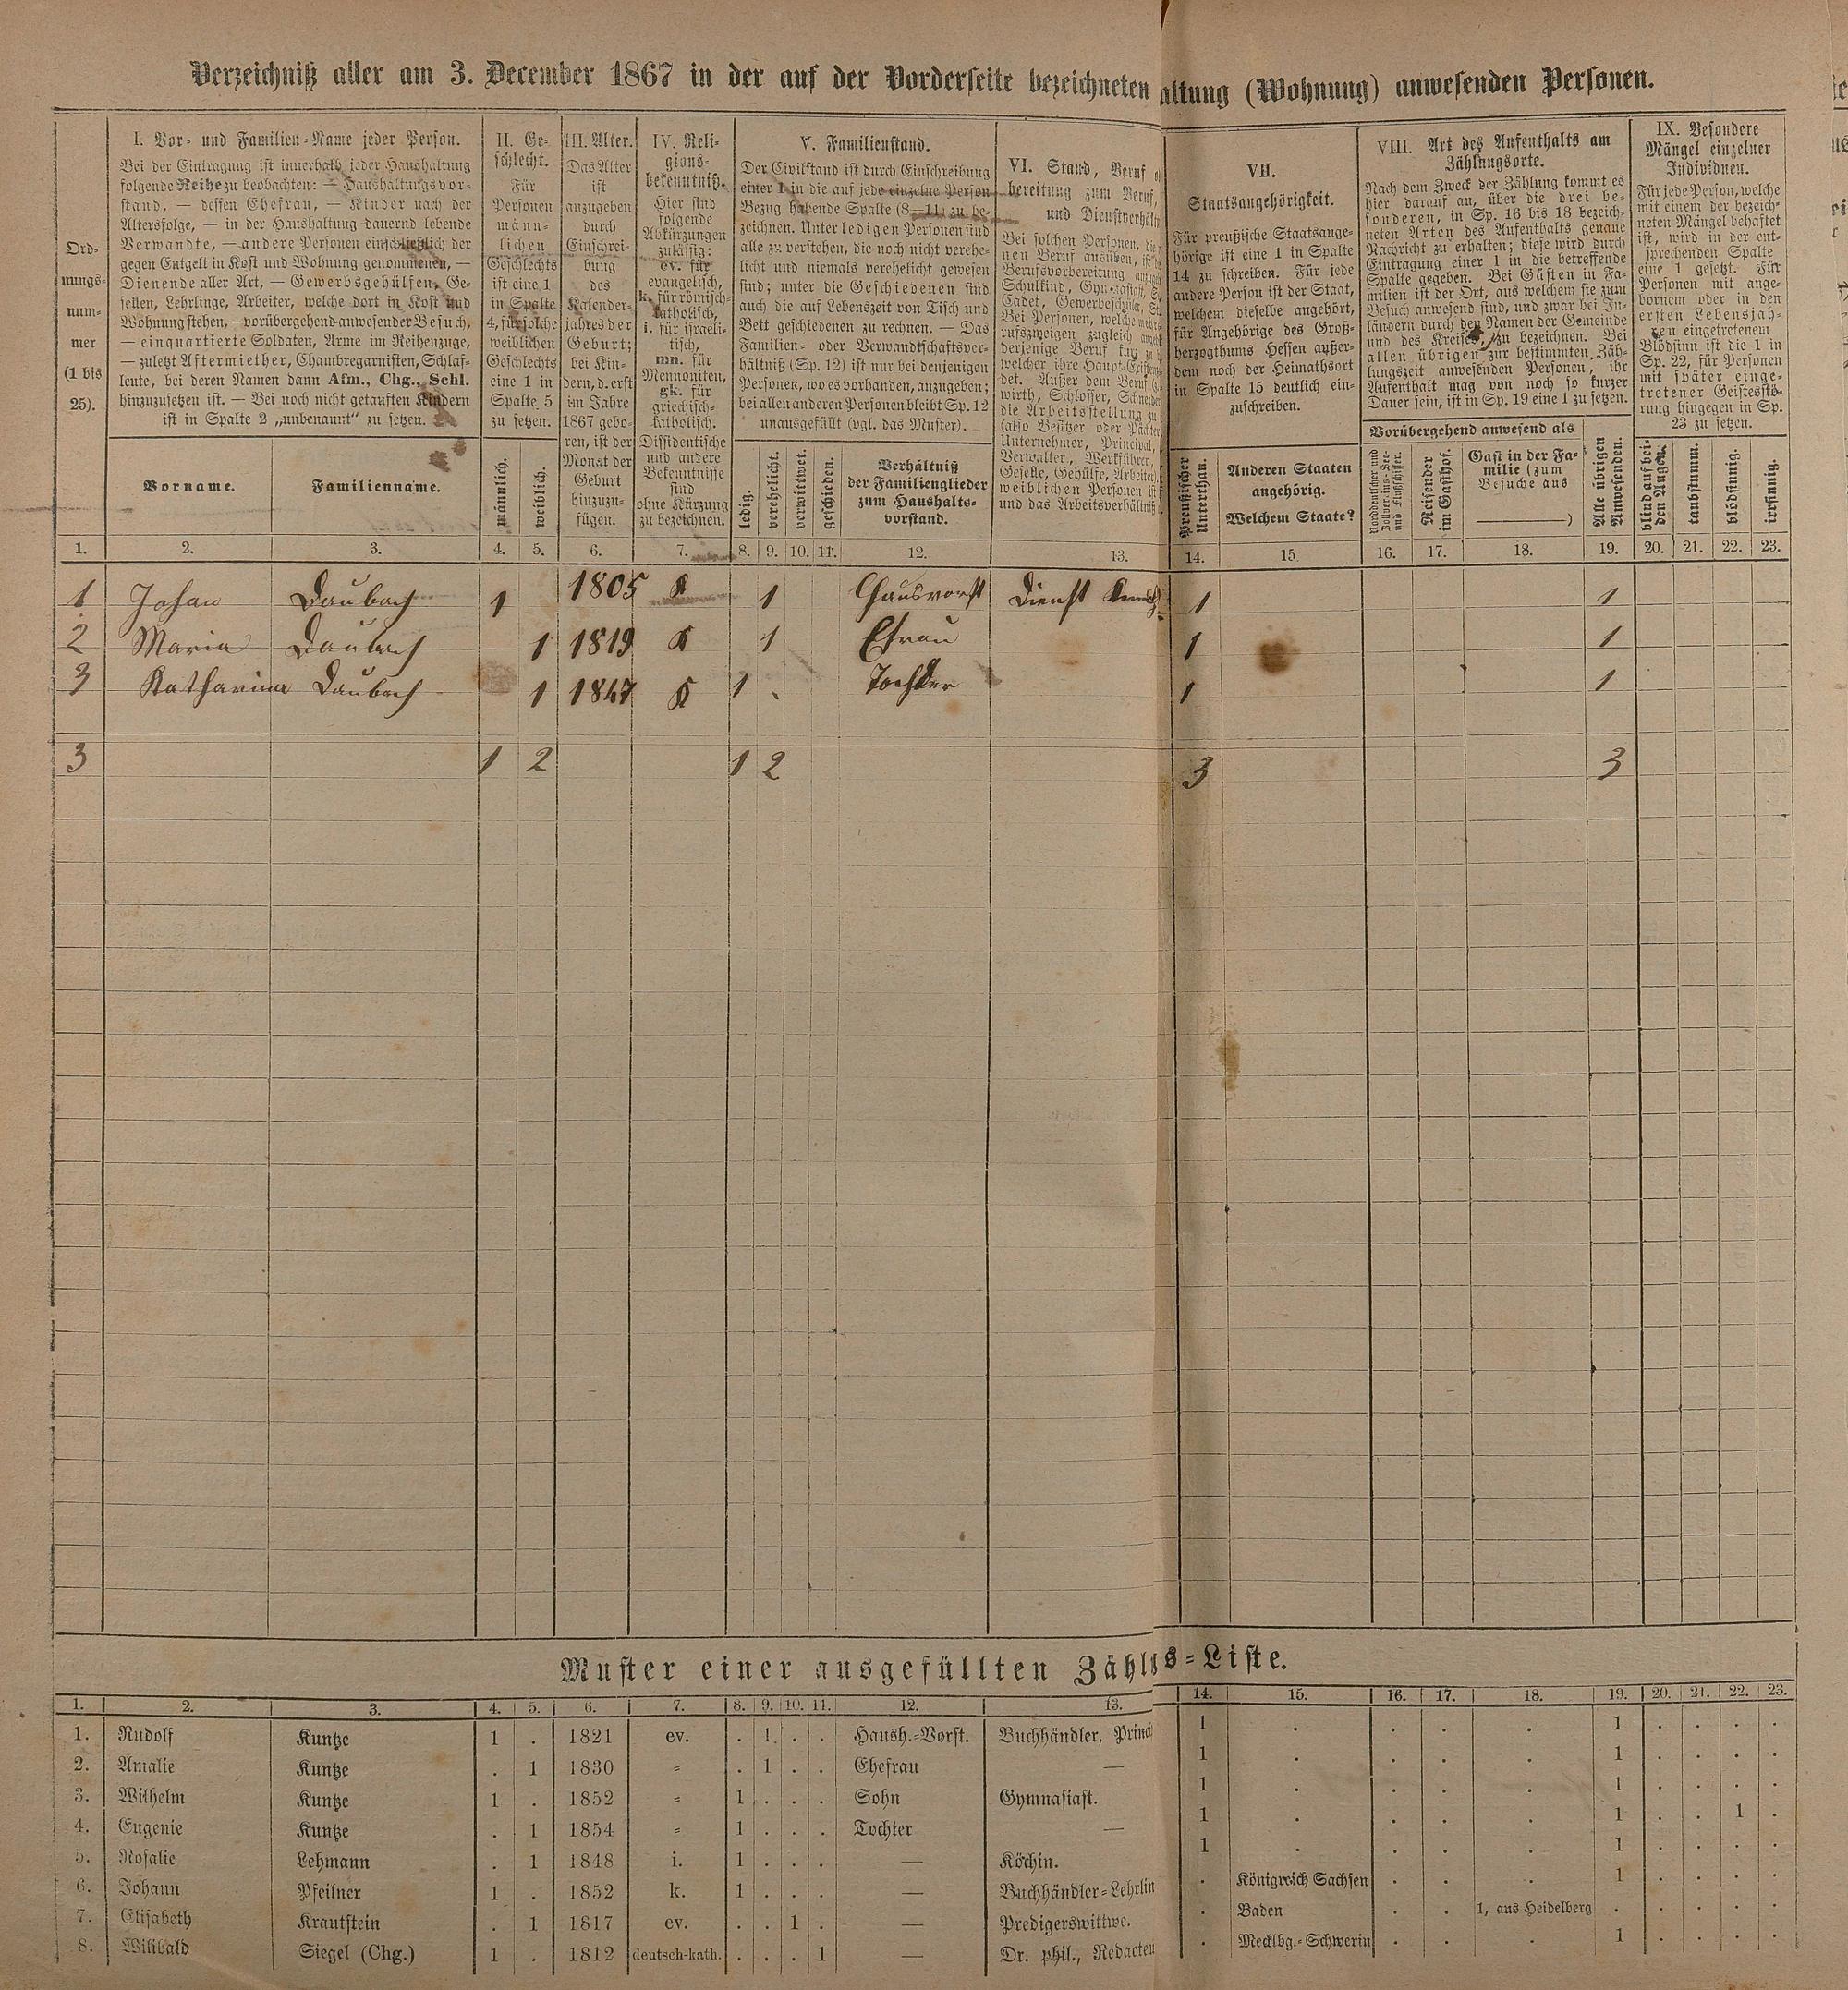 Verzeichniß aller am 3. December 1867 in der auf der Vorderseite bezeichneten altung (Wohnung) anwesenden Personen.
Ord-
nungs-
num-
mer
(1 bis
25).
I. Vor- und Familien-Name jeder Person.
Bei der Eintragung ist innerhalb jeder Haushaltung
folgende Reihe zu beobachten: — Haushaltungsvor-
stand, — dessen Ehefrau, — Kinder nach der
Altersfolge, — in der Haushaltung dauernd lebende
Verwandte, — andere Personen einschließlich der
gegen Entgelt in Kost und Wohnung genommenen, —
Dienende aller Art, — Gewerbsgehülfen, Ge-
sellen, Lehrlinge, Arbeiter, welche dort in Kost und
Wohnung stehen, — vorübergehend anwesender Besuch,
— einquartierte Soldaten, Arme im Reihenzuge,
— zuletzt Aftermiether, Chambregarnisten, Schlaf-
leute, bei deren Namen dann Afm., Chg., Schl.
hinzuzusetzen ist. — Bei noch nicht getauften Kindern
ist in Spalte 2 „unbenannt“ zu setzen.
Vorname.
Familienname.
II. Ge-
schlecht.
Für
Personen
männ-
lichen
Geschlechts
ist eine 1
in Spalte
4, für solche
weiblichen
Geschlechts
eine 1 in
Spalte 5
zu setzen.
männlich.
weiblich.
III. Alter.
Das Alter
ist
anzugeben
durch
Einschrei-
bung
des
Kalender-
jahres der
Geburt;
bei Kin-
dern, d. erst
im Jahre
1867 gebo-
ren, ist der
Monat der
Geburt
hinzuzu-
fügen.
IV. Reli-
gions-
bekenntniß.
Hier sind
folgende
Abkürzungen
zulässig:
ev. für
evangelisch,
k. für römisch-
katholisch,
i. für israeli-
tisch,
mn. für
Mennoniten,
gk. für
griechisch-
katholisch.
Dissidentische
und andere
Bekenntnisse
sind
ohne Kürzung
zu bezeichnen.
V. Familienstand.
Der Civilstand ist durch Einschreibung
einer 1 in die auf jede einzelne Person
Bezug habende Spalte (8—11) zu be-
zeichnen. Unter ledigen Personen sind
alle zu verstehen, die noch nicht verehe-
licht und niemals verehelicht gewesen
sind; unter die Geschiedenen sind
auch die auf Lebenszeit von Tisch und
Bett geschiedenen zu rechnen. — Das
Familien- oder Verwandtschaftsver-
hältniß (Sp. 12) ist nur bei denjenigen
Personen, wo es vorhanden, anzugeben;
bei allen anderen Personen bleibt Sp. 12
unausgefüllt (vgl. das Muster).
ledig.
verehelicht.
verwittwet.
geschieden.
Verhältniß
der Familienglieder
zum Haushalts-
vorstand.
VI. Stand, Beruf o
bereitung zum Beruf,
und Dienstverhältn
Bei solchen Personen, die
nen Beruf ausüben, ist
Berufsvorbereitung
Schulkind, Gymnasiast,
Cadet, Gewerbeschüler,
Bei Personen, welche mehr
rufszweigen zugleich
derjenige Beruf kurz zu
welcher ihre Haupt-Existenz
det. Außer dem Beruf
wirth, Schlosser, Schneider
die Arbeitsstellung zu
(also Besitzer oder Pächter,
Unternehmer, Principal,
Verwalter, Werkführer,
Geselle, Gehülfe, Arbeiter).
weiblichen Personen ist
und das Arbeitsverhältniß
VII.
Staatsangehörigkeit.
Für preußische Staatsange-
hörige ist eine 1 in Spalte
14 zu schreiben. Für jede
andere Person ist der Staat,
welchem dieselbe angehört,
für Angehörige des Groß-
herzogthums Hessen außer-
dem noch der Heimathsort
in Spalte 15 deutlich ein-
zuschreiben.
Preußischer
Unterthan.
Anderen Staaten
angehörig.
Welchem Staate?
VIII. Art des Aufenthalts am
Zählungsorte.
Nach dem Zweck der Zählung kommt es
hier darauf an, über die drei be-
sonderen, in Sp. 16 bis 18 bezeich-
neten Arten des Aufenthalts genaue
Nachricht zu erhalten; diese wird durch
Eintragung einer 1 in die betreffende
Spalte gegeben. Bei Gästen in Fa-
milien ist der Ort, aus welchem sie zum
Besuch anwesend sind, und zwar bei In-
ländern durch den Namen der Gemeinde
und des Kreises zu bezeichnen. Bei
allen übrigen zur bestimmten Zäh-
lungszeit anwesenden Personen, ihr
Aufenthalt mag von noch so kurzer
Dauer sein, ist in Sp. 19 eine 1 zu setzen.
Vorübergehend anwesend als
Norddeutscher und
Zollvereins-See-
und Flußschiffer.
Reisender
im Gasthof.
Gast in der Fa-
milie (zum
Besuche aus
)
Alle übrigen
Anwesenden.
IX. Besondere
Mängel einzelner
Individuen.
Für jede Person, welche
mit einem der bezeich-
neten Mängel behaftet
ist, wird in der ent-
sprechenden Spalte
eine 1 gesetzt. Für
Personen mit ange-
bornem oder in den
ersten Lebensjah-
ren eingetretenem
Blödsinn ist die 1 in
Sp. 22, für Personen
mit später einge-
tretener Geistesstö-
rung hingegen in Sp.
23 zu setzen.
blind auf bei-
den Augen.
taubstumm.
blödsinnig.
irrsinnig.
1. 2. 3. 4. 5. 6. 7. 8. 9. 10. 11. 12. 13. 14. 15. 16. 17. 18. 19. 20. 21. 22. 23.
1 Johan Daubach 1 1805 K 1 Hausvorst Dienst Knecht 1 1
2 Maria Daubach 1 1819 K 1 Efrau 1 1
3 Katharina Daubach 1 1847 K 1 Tochter 1 1
3 1 2 1 2 3 3
Muster einer ausgefüllten Zähls-Liste.
1. 2. 3. 4. 5. 6. 7. 8. 9. 10. 11. 12. 13. 14. 15. 16. 17. 18. 19. 20. 21. 22. 23.
1. Rudolf Kuntze 1 . 1821 ev. . 1 . . Haush.-Vorst. Buchhändler, Princ 1 . . . . 1 . . . .
2. Amalie Kuntze . 1 1830 „ . 1 . . Ehefrau — 1 . . . . 1 . . . .
3. Wilhelm Kuntze 1 . 1852 „ 1 . . . Sohn Gymnasiast. 1 . . . . 1 . . . .
4. Eugenie Kuntze . 1 1854 „ 1 . . . Tochter — 1 . . . . 1 . . 1 .
5. Rosalie Lehmann . 1 1848 i. 1 . . . — Köchin. 1 . . . . 1 . . . .
6. Johann Pfeilner 1 . 1852 k. 1 . . . — Buchhändler-Lehrlin . Königreich Sachsen . . . 1 . . . .
7. Elisabeth Krautstein . 1 1817 ev. . . 1 . — Predigerswittwe. . Baden . . 1, aus Heidelberg . . . . .
8. Willibald Siegel (Chg.) 1 . 1812 deutsch-kath. . . . 1 — Dr. phil., Redacteu . Mecklbg.-Schwerin . . . 1 . . . .